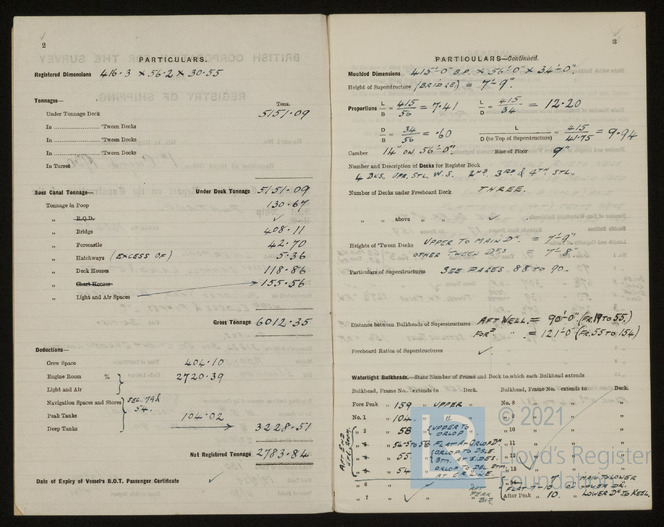 2
PARTICULARS.
Registered Dimensions 416·3 × 56·2 × 30·55
Tonnages—
Tons.
Under Tonnage Deck 5151·09
In 'Tween Decks
In 'Tween Decks
In 'Tween Decks
In Turret
Suez Canal Tonnage— Under Deck Tonnage 5151·09
Tonnage in Poop 130·67
„ R.Q.D. ✓
„ Bridge 408·11
„ Forecastle 42·70
„ Hatchways (EXCESS OF) 5·36
„ Deck Houses 118·86
„ Chart Houses 155·56
„ Light and Air Spaces
Gross Tonnage 6012·35
Deductions—
Crew Space 404·10
Engine Room % 2720·39
Light and Air
Navigation Spaces and Stores
Peak Tanks 104·02
Deep Tanks 3228·51
Net Registered Tonnage 2783·84
Date of Expiry of Vessel's B.O.T. Passenger Certificate
3
PARTICULARS—Continued.
Moulded Dimensions 415'-0" B.P. × 56'-0" × 34'-0".
Height of Superstructure (BRIDGE) = 7'-9".
Proportions L/B = 415/56 = 7·41 L/D = 415/34 = 12·20
D/B = 34/56 = ·60 L/D (to Top of Superstructure) = 415/41·75 = 9·94
Camber 14" ON 56'-0". Rise of Floor 9"
Number and Description of Decks for Register Book
4 DKS, UPR, STL, W.S. 2ND, 3RD & 4TH STL.
Number of Decks under Freeboard Deck THREE.
„ „ above „ „ ✓
Heights of 'Tween Decks UPPER TO MAIN DK = 7'-9"
OTHER 'TWEEN DKS = 7'-8"
Particulars of Superstructures SEE PAGES 88 TO 90.
Distance between Bulkheads of Superstructures AFT WELL = 90'-0" (FR. 19 TO 55,)
FORD „ = 121'-0" (FR. 55 TO 154)
Freeboard Ratios of Superstructures ✓
Watertight Bulkheads. State Number of Frame and Deck to which each Bulkhead extends
Bulkhead, Frame No. extends to Deck. Bulkhead, Frame No. extends to Deck.
Fore Peak „ 159 „ UPPER „ No. 8
No. 1 „ 104 „ „ „ 9
© 2021
Lloyd's Register
Foundation